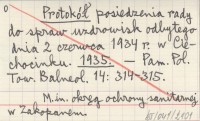 Protokół posiedzenia rady
do spraw uzdrowisk odbytego
dnia 2 czerwca 1934 r. w Cie-
chocinku. 1935. — Pam. Pol.
Tow. Balneol. 14: 314-315.
M.in. okręg ochrony sanitarnej
w Zakopanem